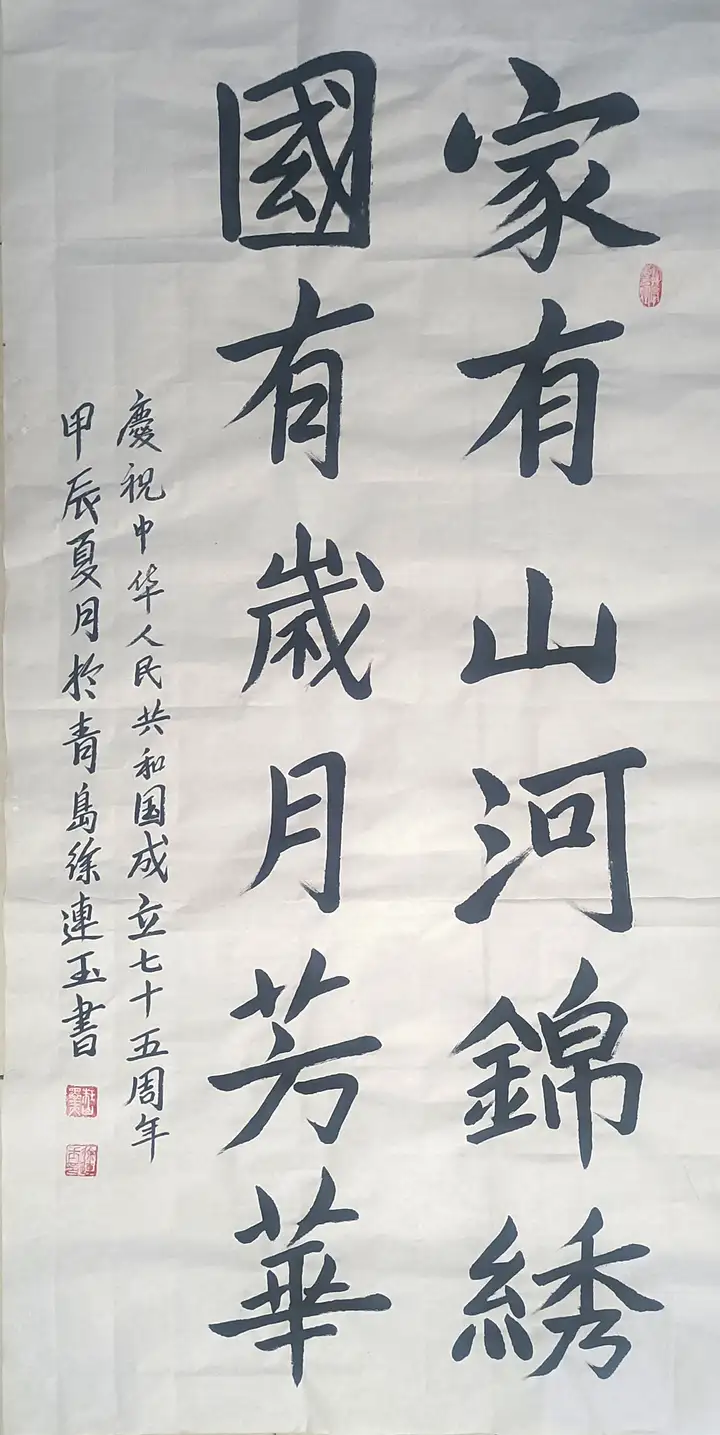 家有山河錦綉
國有歲月芳華
慶祝中华人民共和国成立七十五周年
甲辰夏月於青島徐連玉書